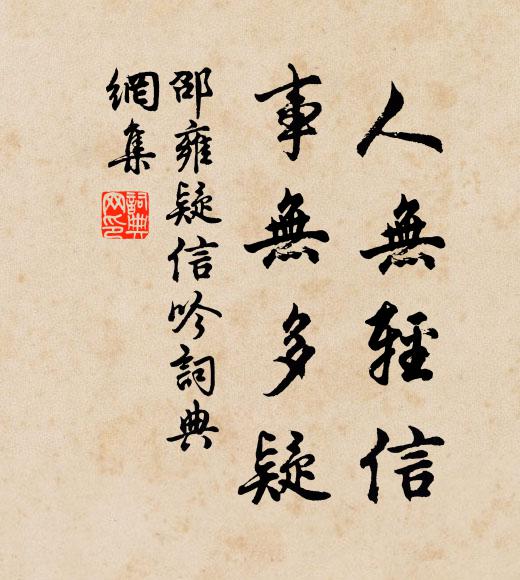 人無輕信
事無多疑
邵雍疑信吟詞典
網集
詞典
网印